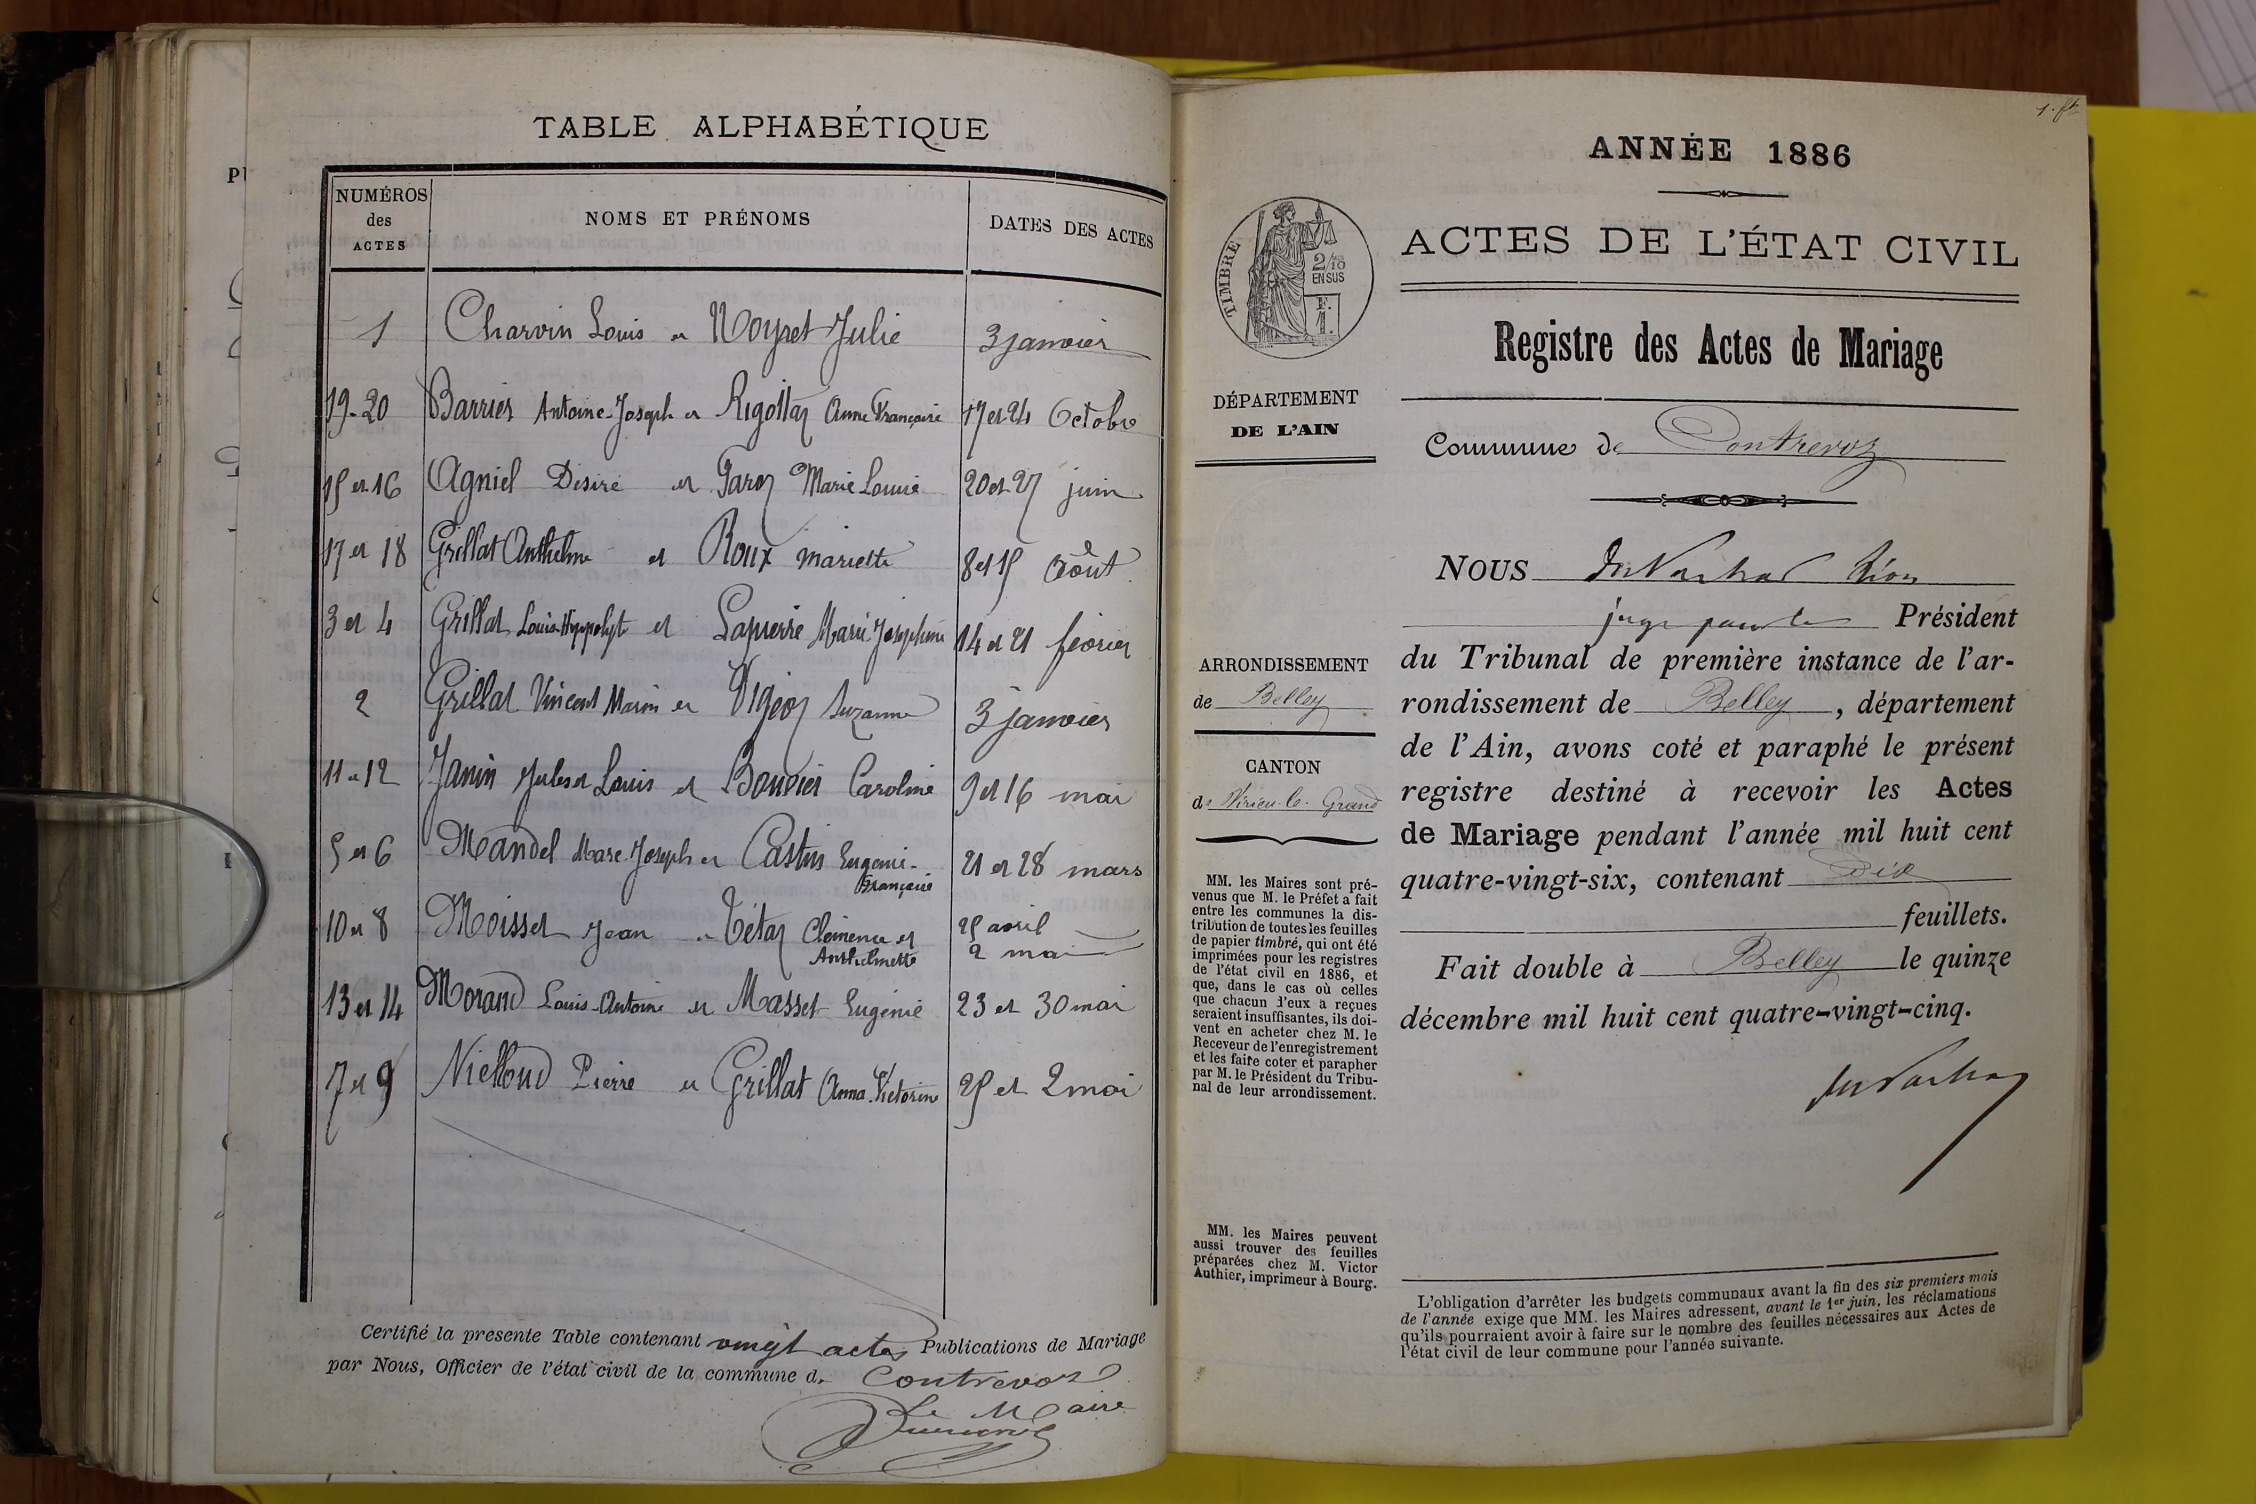 TABLE ALPHABÉTIQUE
NUMÉROS des ACTES NOMS ET PRÉNOMS DATES DES ACTES
1 Charvin Louis et Noyret Julie 3 janvier
19-20 Barrier Antoine-Joseph et Rigollaz Anne Françoise 17 et 24 Octobre
15 et 16 Agniel Désiré et Garoz Marie Louise 20 et 27 juin
17 et 18 Grillat Anthelme et Roux Mariette 8 et 15 Août
3 et 4 Grillat Louis-Hyppolyte et Lapierre Marie-Joséphine 14 et 21 février
2 Grillat Vincent Marin et Vigeoz Suzanne 3 janvier
11 et 12 Janin Jules et Louis et Bouvier Caroline 9 et 16 mai
5 et 6 Mandel Marc-Joseph et Castin Eugénie-
Françoise 21 et 28 mars
10 et 8 Moisset Jean et Tétaz Clémence et
Anthelmette 25 avril
2 mai
13 et 14 Morand Louis-Antoine et Masset Eugénie 23 et 30 mai
7 et 9 Nielloud Pierre et Grillat Anna-Victorine 25 et 2 mai
Certifié la presente Table contenant vingt actes Publications de Mariage
par Nous, Officier de l'état civil de la commune d. Contrevoz
Le Maire
ANNÉE 1886
TIMBRE
2/10
EN SUS
F.
1.
ACTES DE L'ÉTAT CIVIL
Registre des Actes de Mariage
DÉPARTEMENT
DE L'AIN
Commune de Contrevoz
NOUS
juge pour le Président
ARRONDISSEMENT
de Belley
CANTON
de Virieu-le-Grand
du Tribunal de première instance de l'ar-
rondissement de Belley, département
de l'Ain, avons coté et paraphé le présent
registre destiné à recevoir les Actes
de Mariage pendant l'année mil huit cent
quatre-vingt-six, contenant Dix
feuillets.
Fait double à Belley le quinze
décembre mil huit cent quatre-vingt-cinq.
MM. les Maires sont pré-
venus que M. le Préfet a fait
entre les communes la dis-
tribution de toutes les feuilles
de papier timbré, qui ont été
imprimées pour les registres
de l'état civil en 1886, et
que, dans le cas où celles
que chacun d'eux a reçues
seraient insuffisantes, ils doi-
vent en acheter chez M. le
Receveur de l'enregistrement
et les faire coter et parapher
par M. le Président du Tribu-
nal de leur arrondissement.
MM. les Maires peuvent
aussi trouver des feuilles
préparées chez M. Victor
Authier, imprimeur à Bourg.
L'obligation d'arrêter les budgets communaux avant la fin des six premiers mois
de l'année exige que MM. les Maires adressent, avant le 1er juin, les réclamations
qu'ils pourraient avoir à faire sur le nombre des feuilles nécessaires aux Actes de
l'état civil de leur commune pour l'année suivante.